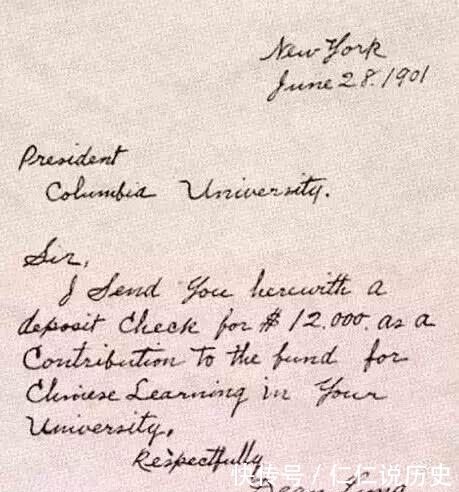 New York
June 28. 1901
President
Columbia University.
Sir,
I Send You herewith a
deposit Check for $12,000. as a
Contribution to the fund for
Chinese Learning in Your
University.
Respectfully
Dean Lung
快传号 / 仁仁说历史